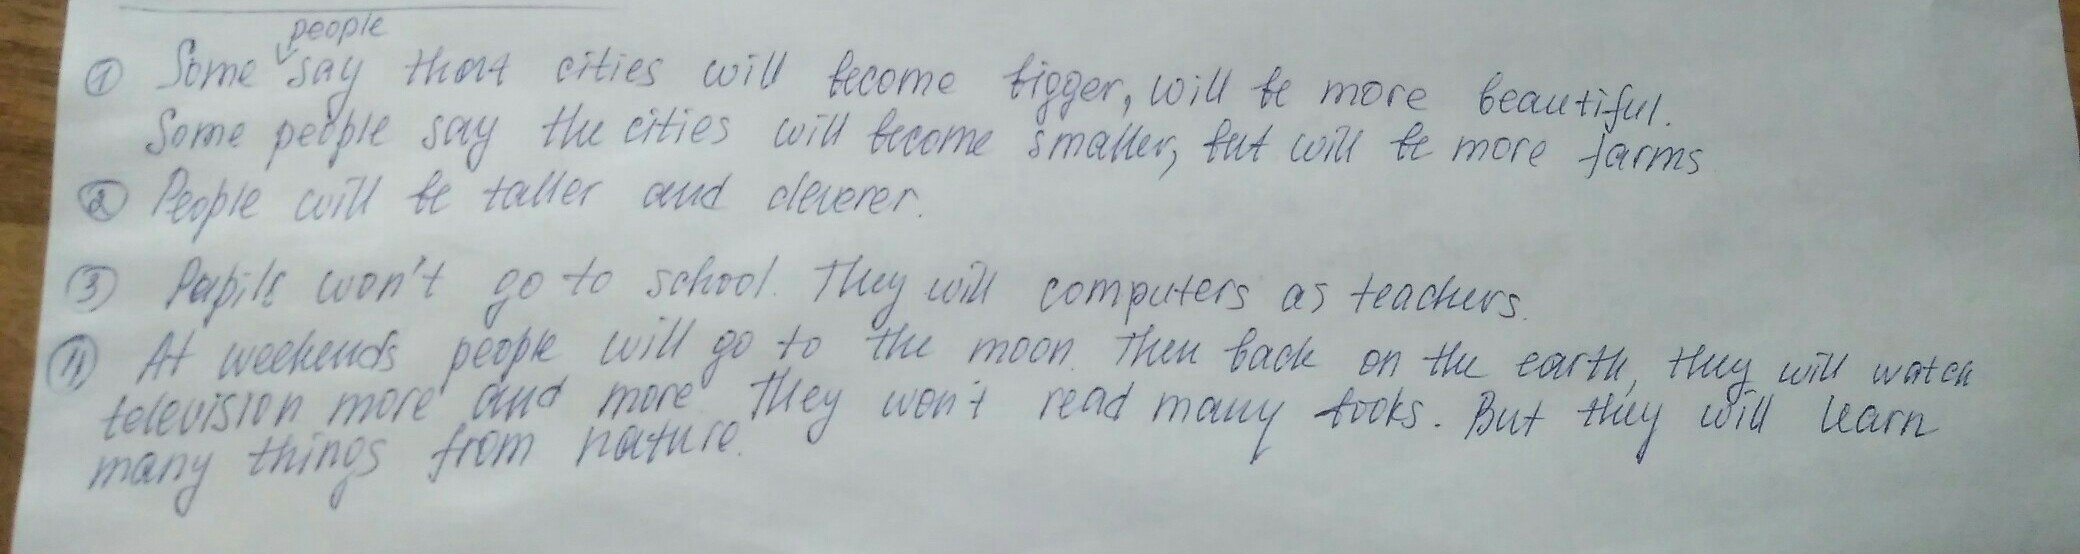 people
① Some say that cities will become bigger, will be more beautiful.
Some people say the cities will become smaller, but will be more farms
② People will be taller and cleverer.
③ Pupils won't go to school. They will computers as teachers.
④ At weekends people will go to the moon. Then back on the earth, they will watch
television more and more. They won't read many books. But they will learn
many things from nature.